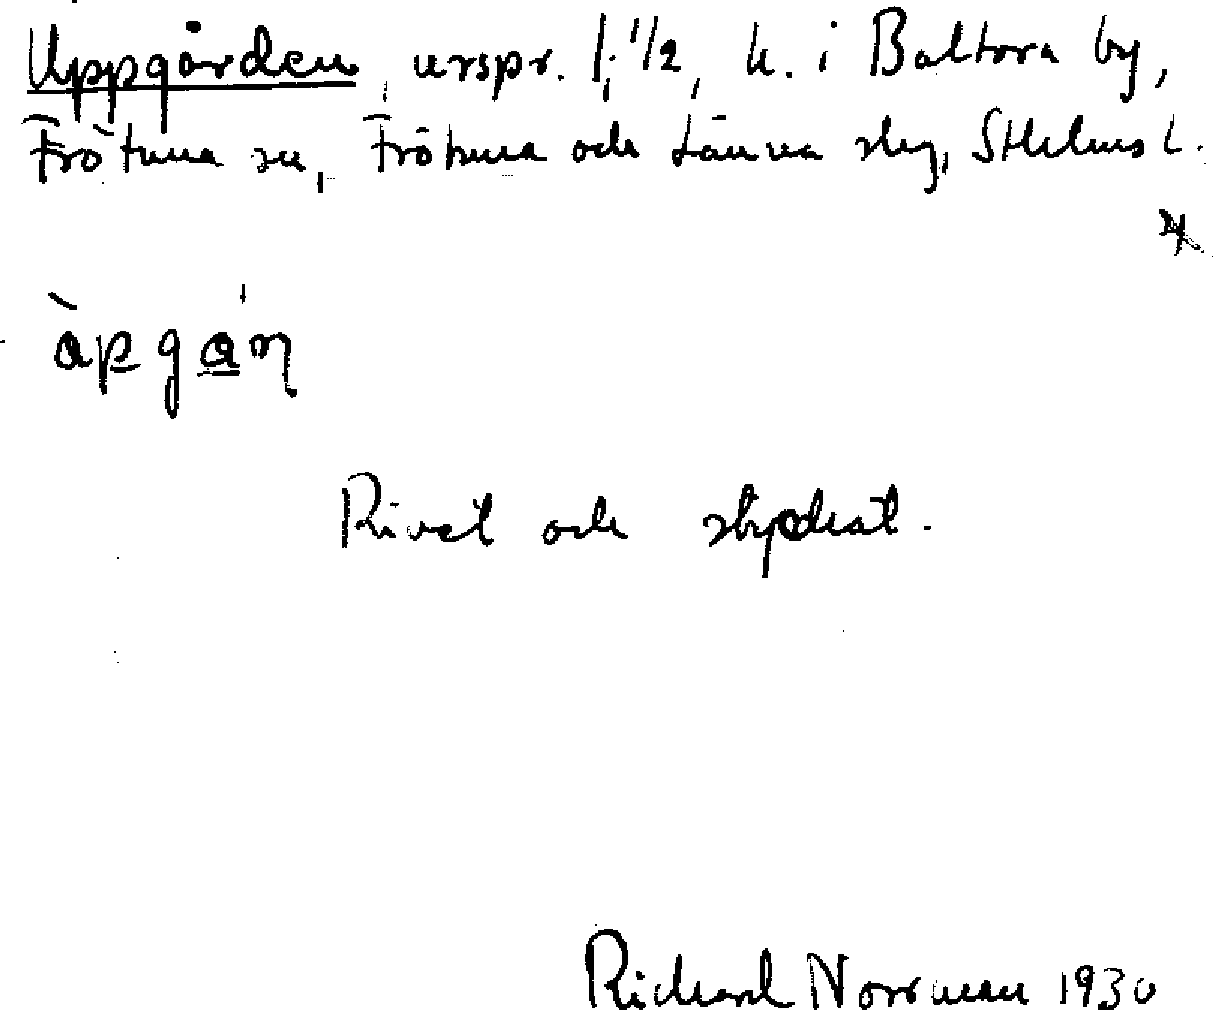 Uppgården, urspr. 1/2, h. i Baltora by,
Frötuna sn, Frötuna och Länna slg, Sthlms l.
àpgan
Rivet och stycket.
Richard Norrman 1930